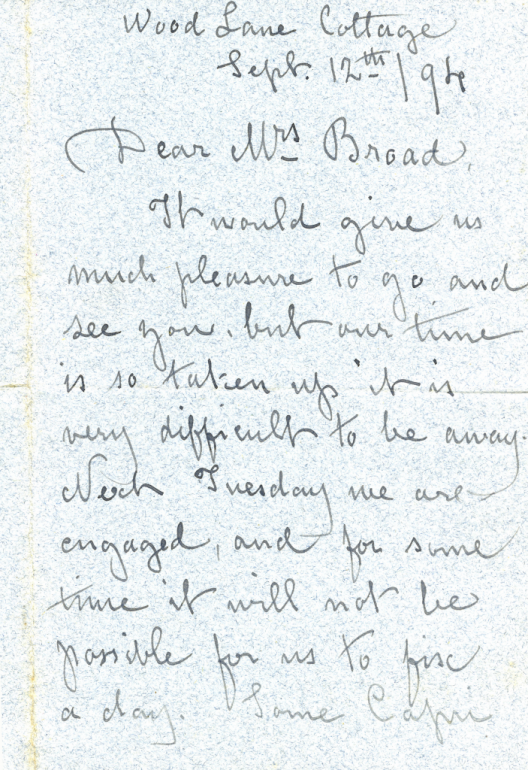 Wood Lane Cottage
Sept. 12th/94
Dear Mrs Broad,
It would give us
much pleasure to go and
see you, but our time
is so taken up it is
very difficult to be away.
Next Tuesday we are
engaged, and for some
time it will not be
possible for us to fix
a day. Some Capri